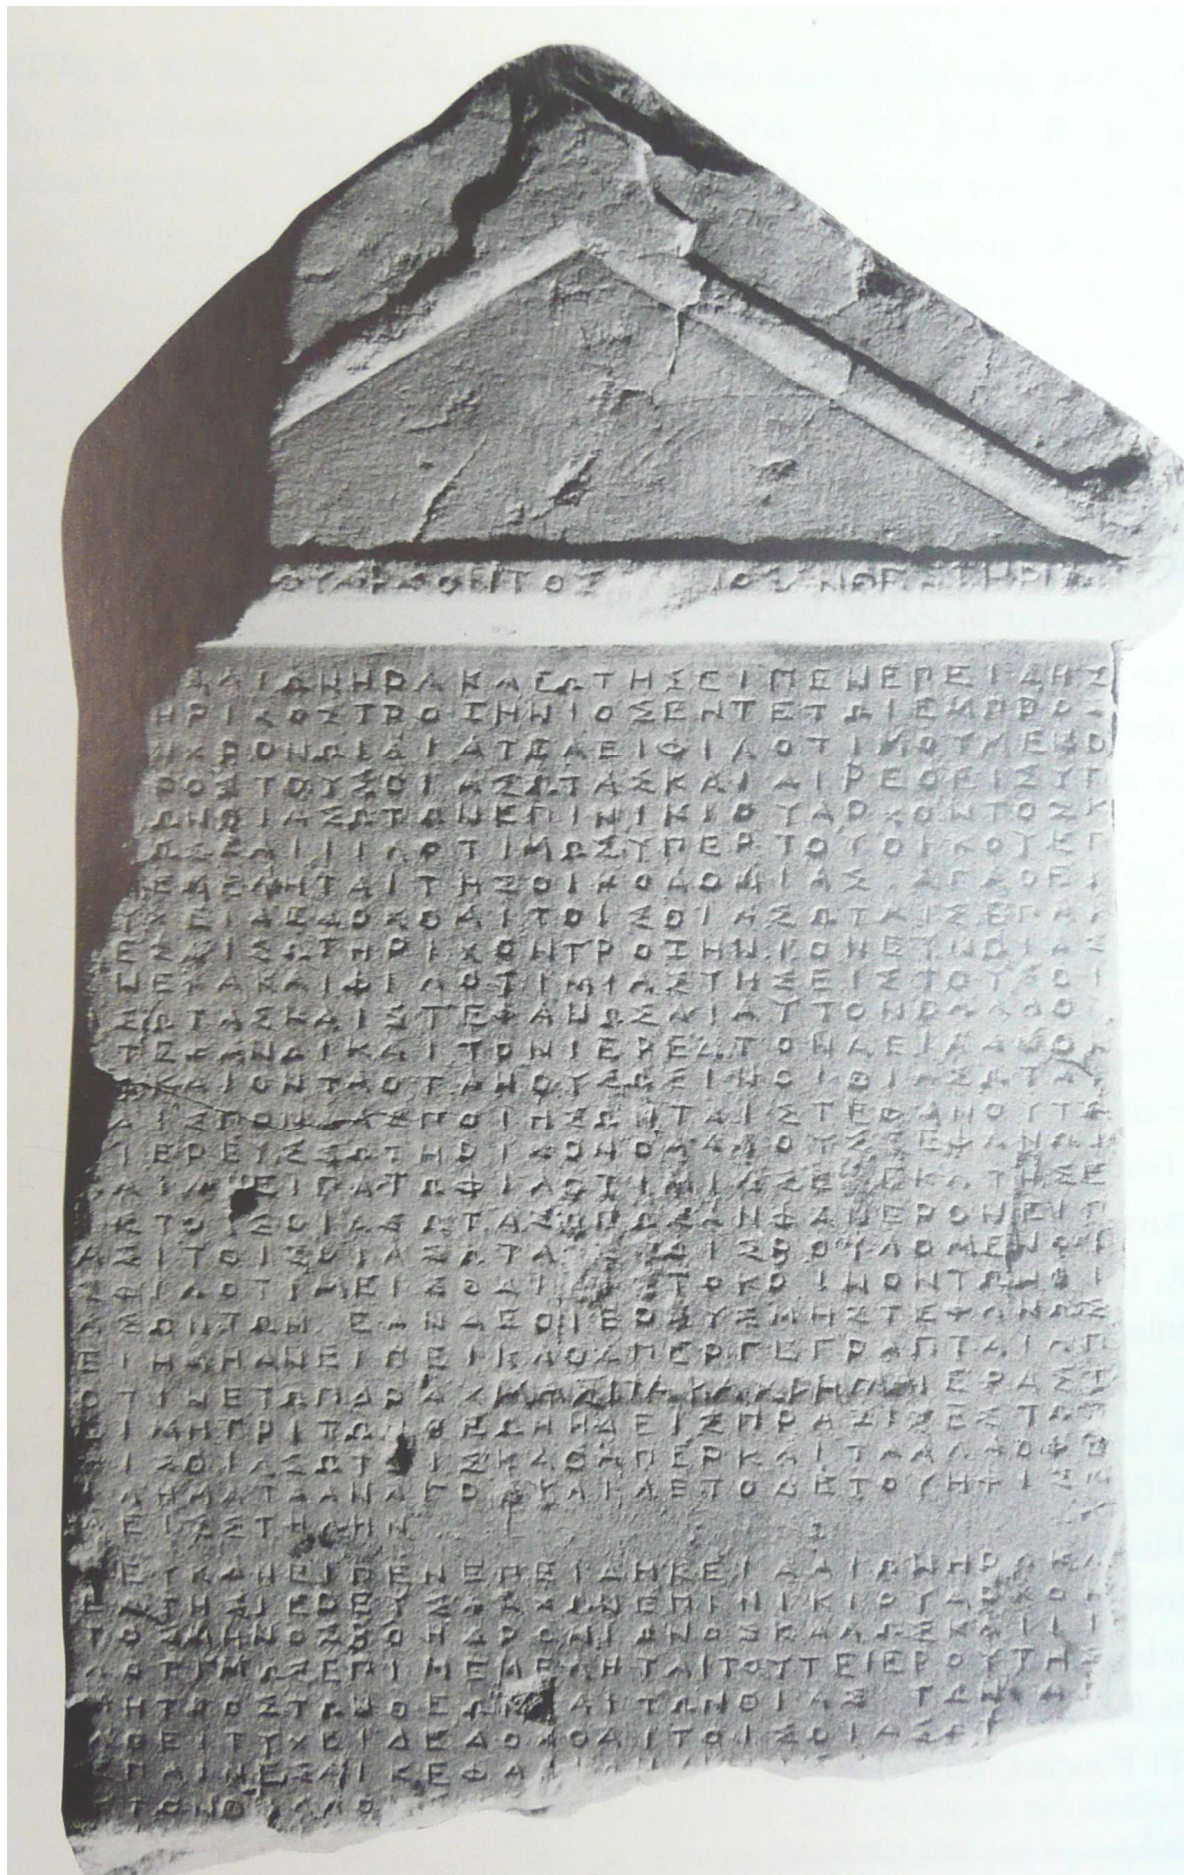 ΟΥΑΡΧΟΝΤΟΣ ΙΟΣΑΝΘΕΣΤΗΡΙΩ
ΑΛΙΩΝΗΡΑΚΛΕΩΤΗΣΕΙΠΕΝΕΠΕΙΔΗΣ
ΗΡΙΧΟΣΤΡΟΙΗΝΙΟΣΕΝΤΕΤΩΙΕΜΠΡΟΣ
ΝΧΡΟΝΩΙΔΙΑΤΕΛΕΙΦΙΛΟΤΙΜΟΥΜΕΝΟ
ΡΟΣΤΟΥΣΘΙΑΣΩΤΑΣΚΑΙΑΙΡΕΘΕΙΣΥΠ
ΩΝΘΙΑΣΩΤΩΝΕΠΙΝΙΚΙΟΥΑΡΧΟΝΤΟΣΚ
ΩΣΚΑΙΦΙΛΟΤΙΜΩΣΥΠΕΡΤΟΥΟΙΚΟΥΕΠ
ΜΕΛΗΤΑΙΤΗΣΟΙΚΟΔΟΜΙΑΣΑΓΑΘΕΙ
ΥΧΕΙΔΕΔΟΧΘΑΙΤΟΙΣΘΙΑΣΩΤΑΙΣΕΠΑΙ
ΕΣΑΙΣΩΤΗΡΙΧΟΝΤΡΟΙΗΝΙΟΝΕΥΝΟΙΑΣ
ΝΕΚΑΚΑΙΦΙΛΟΤΙΜΙΑΣΤΗΣΕΙΣΤΟΥΣΘΙ
ΣΩΤΑΣΚΑΙΣΤΕΦΑΝΩΣΑΙΑΥΤΟΝΘΑΛΛΟ
ΤΕΦΑΝΩΙΚΑΙΤΟΝΙΕΡΕΑΤΟΝΑΕΙΛΑΧΟ
ΚΑΙΟΝΤΑΟΤΑΝΘΥΩΣΙΝΟΙΘΙΑΣΩΤΑΙ
ΑΙΣΠΟΝΔΑΣΠΟΙΗΣΩΝΤΑΙΣΤΕΦΑΝΟΥΤΩ
ΙΕΡΕΥΣΣΩΤΗΡΙΧΟΝΘΑΛΛΟΥΣΤΕΦΑΝΩΙ
ΑΙΑΝΕΙΠΑΤΩΦΙΛΟΤΙΜΙΑΣΕΝΕΚΑΤΗΣΕ
ΣΤΟΥΣΘΙΑΣΩΤΑΣΟΠΩΣΑΝΦΑΝΕΡΟΝΕΙΠ
ΑΣΙΤΟΙΣΘΙΑΣΩΤΑΙΣ ΤΟΙΣΒΟΥΛΟΜΕΝΟΙ
ΦΙΛΟΤΙΜΕΙΣΘΑΙ ΕΙΣΤΟΚΟΙΝΟΝΤΩΝΘΙ
ΑΣΩΤΩΝ ΕΑΝΔΕΟΙΕΡΕΥΣΜΗΣΤΕΦΑΝΩΣ
ΕΙΗΜΗΑΝΕΙΠΕΙΚΑΘΑΠΕΡΓΕΓΡΑΠΤΑΙΑΠ
ΟΤΙΝΕΤΩΠ ΔΡΑΧΜΑΣ ΙΕΡΑΣΤ
ΙΜΗΤΡΙΤΩΝΘΕΩΝΗΔΕΙΣΠΡΑΞΙΣΕΣΤΩ
ΙΣΘΙΑΣΩΤΑΙΣΚΑΘΑΠΕΡΚΑΙΤΑΑΛΛΑΟΦΕ
ΛΗΜΑΤΑΑΝΑΓΡΑΨΑΙΔΕΤΟΔΕΤΟΨΗΦΙΣΜ
ΕΙΣΣΤΗΛΗΝ
ΕΥΚΛΗΣΕΙΠΕΝΕΠΕΙΔΗΚΕΦΑΛΙΩΝΗΡΑΚΛ
ΤΗΣΙΕΡΕΥΣΛΑΧΩΝΕΠΙΝΙΚΙΟΥΑΡΧΟ
ΤΟΣΜΗΝΟΣΒΟΗΔΡΟΜΙΩΝΟΣΚΑΛΩΣΚΑΙΦΙ
ΛΟΤΙΜΩΣΕΠΙΜΕΜΕΛΗΤΑΙΤΟΥΤΕΙΕΡΟΥΤΗΣ
ΜΗΤΡΟΣΤΩΝΘΕΩΝΚΑΙΤΩΝΘΙΑΣ ΤΩΝ
ΑΘΕΙΤΥΧΕΙΔΕΔΟΧΘΑΙΤΟΙΣΘΙΑΣΩΤ
ΠΑΙΝΕΣΑΙΚΕΦΑΛΙ
ΤΟΝΘ ΛΛΟ